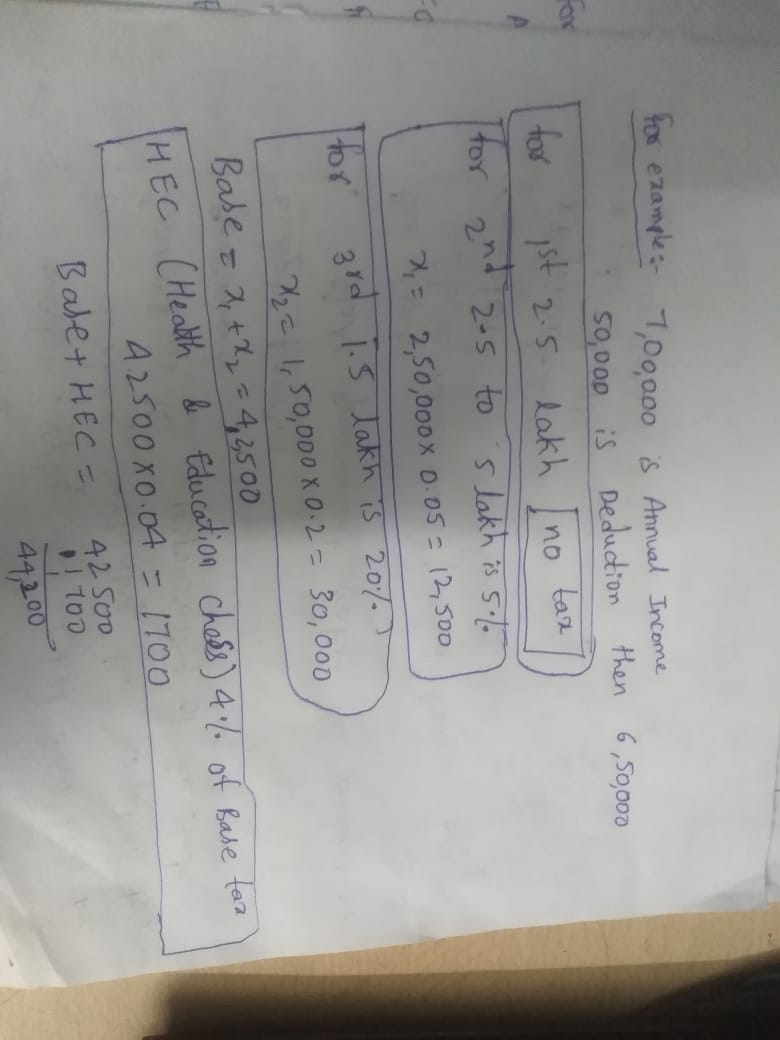 for example:- 7,00,000 is Annual Income
50,000 is Deduction then 6,50,000
for 1st 2.5 lakh no tax
for 2nd 2.5 to 5 lakh is 5%
x₁ = 2,50,000 x 0.05 = 12,500
for 3rd 1.5 lakh is 20%
x₂ = 1,50,000 x 0.2 = 30,000
Base = x₁ + x₂ = 42500
HEC (Health & Education Chess) 4% of Base tax
42500 x 0.04 = 1700
Base + HEC = 42500
1700
44,200